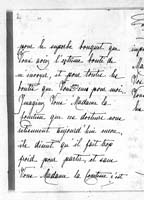 pour le superbe bouquet que
Vous avez l'extrême bonté de
m'envoyer, et pour toutes les
bontés que Vous avez pour moi.
Imaginez Vous Madame la
Comtesse que ma
aujourd'hui mon
me disant qu'il fait trop
froid pour partir, et sans
Vous Madame la Comtesse c'est